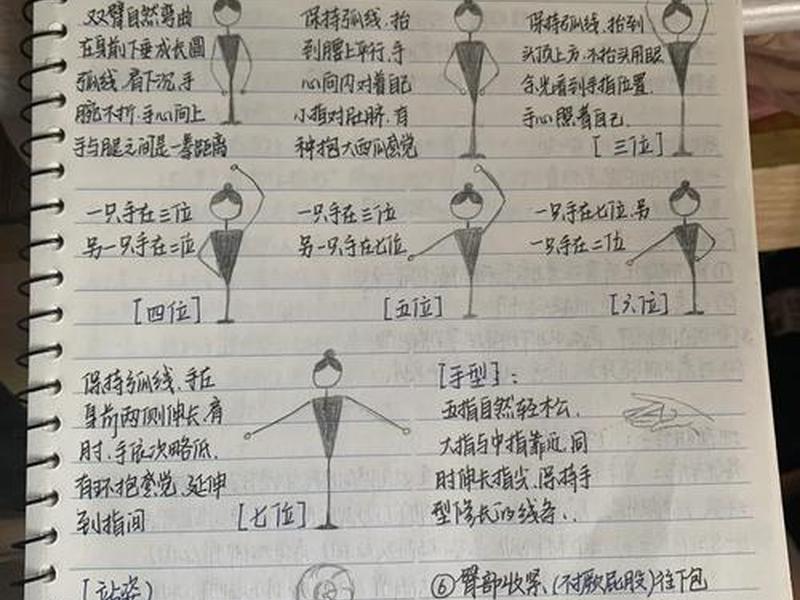 双臂自然弯曲
在身前下垂成长圆
弧线,肩下沉,手
腕不折,手心向上
手与腿之间是一拳距离
保持弧线,抬
到腰上平行,手
心向内对着自己
小指对肚脐,有
种抱大西瓜感觉
保持弧线,抬到
头顶上方,不抬头用眼
余光看到手指位置,
手心照着自己
[三位]
一只手在三位
另一只手在二位
[四位]
一只手在三位
另一只手在七位
[五位]
一只手在七位,另
一只手在二位
[六位]
保持弧线,手在
身前两侧伸长,肩
肘,手依次略低,
有环抱感觉,延伸
到指间
[七位]
[手型]:
五指自然轻松,
大指与中指靠近,同
时伸长指尖,保持手
型修长的线条..
[站姿]
⑥臀部收紧,(不撅屁股)往下包